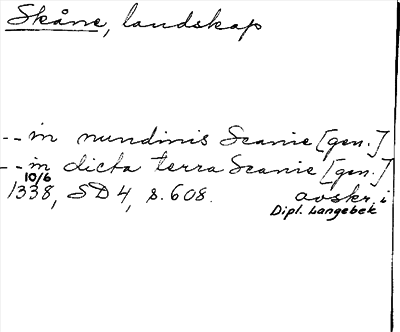 Skåne, landskap
-- in nundinis Scanie [gen.]
-- in dicta terra Scanie [gen.]
10/6
1338, SD 4, s. 608. avskr. i
Dipl. Langebek